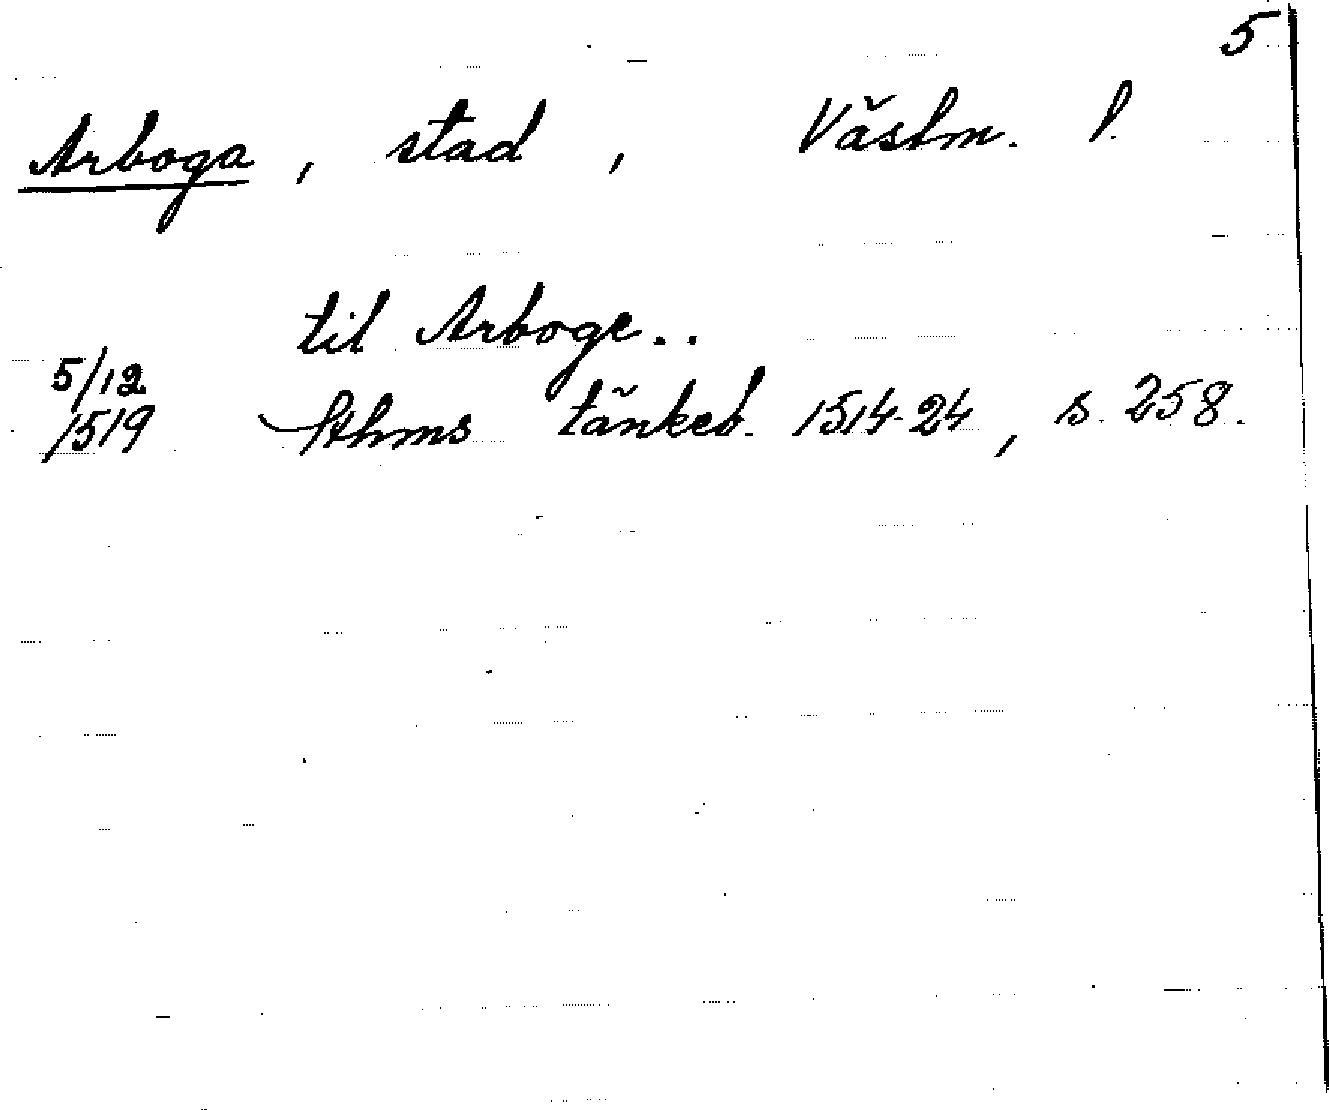 5
Arboga, stad, Västm. l.
til Arboge..
5/12
1519 Sthms tänkeb. 1514-24, s. 258.